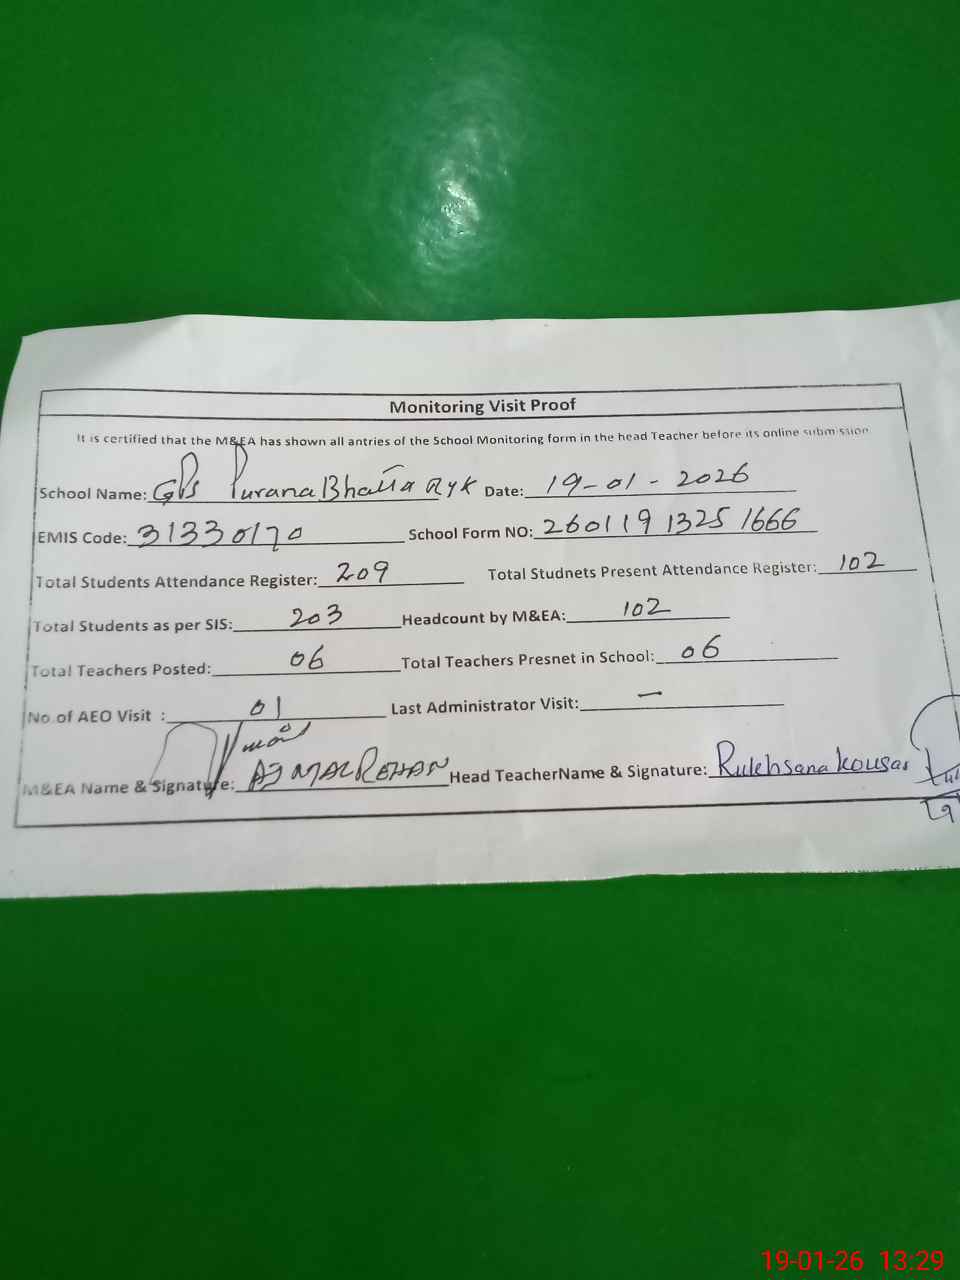 Monitoring Visit Proof
It is certified that the M&EA has shown all antries of the School Monitoring form in the head Teacher before its online submission
School Name: GPS Purana Bhatta RYK Date: 19-01-2026
EMIS Code: 31330170 School Form NO: 260119 1325 1666
Total Students Attendance Register: 209 Total Studnets Present Attendance Register: 102
Total Students as per SIS: 203 Headcount by M&EA: 102
Total Teachers Posted: 06 Total Teachers Presnet in School: 06
No of AEO Visit : 01 Last Administrator Visit: —
M&EA Name & Signature: AJMAL REHAN Head TeacherName & Signature: Rukhsana kousar
19-01-26 13:29